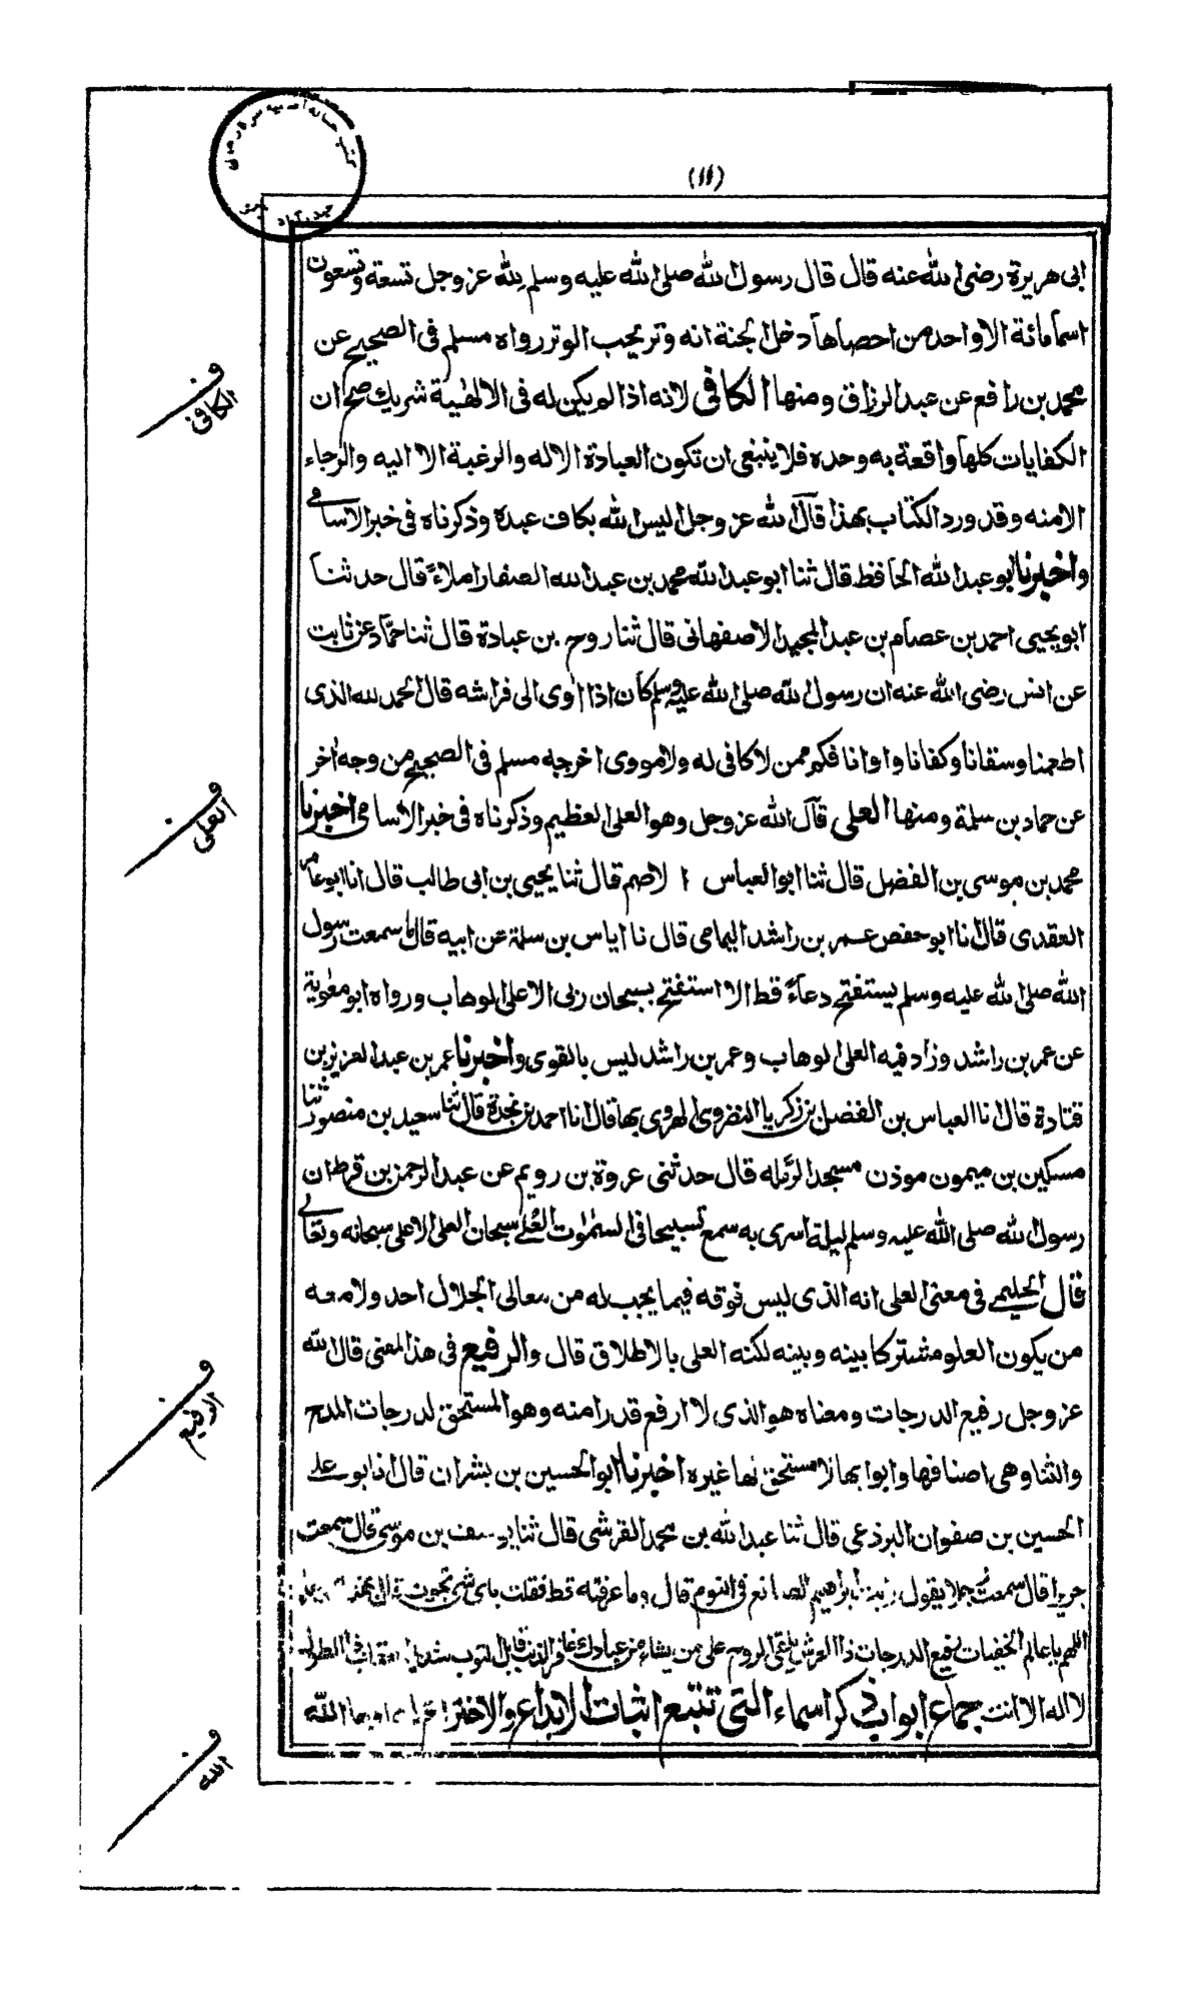 (١١)
ابى هريرة رضى الله عنه قال قال رسول الله صلى الله عليه وسلم لله عز وجل تسعة وتسعون
اسما مائة الا واحد من احصاها دخل الجنة انه وتر يحب الوتر رواه مسلم فى الصحيح عن
محمد بن رافع عن عبد الرزاق ومنها الكافى لانه اذا لم يكن له فى الالهية شريك صح ان
الكفايات كلها واقعة به وحده فلا ينبغى ان تكون العبادة الا له والرغبة الا اليه والرجاء
الا منه وقد ورد الكتاب بهذا قال الله عز وجل اليس الله بكاف عبده وذكرناه فى خبر الاسامى
واخبرنا ابو عبد الله الحافظ قال ثنا ابو عبد الله محمد بن عبد الله الصفار املاءً قال حدثنا
ابو يحيى احمد بن عصام بن عبد المجيد الاصفهانى قال ثنا روح بن عبادة قال ثنا حمّاد عن ثابت
عن انس رضى الله عنه ان رسول الله صلى الله عليه وسلم كان اذا اوى الى فراشه قال الحمد لله الذى
اطعمنا وسقانا وكفانا واوانا فكم ممن لا كافى له ولا مووى اخرجه مسلم فى الصحيح من وجه اخر
عن حماد بن سلمة ومنها العلى قال الله عز وجل وهو العلى العظيم وذكرناه فى خبر الاسامى اخبرنا
محمد بن موسى بن الفضل قال ثنا ابو العباس الاصم قال ثنا يحيى بن ابى طالب قال انا ابو عامر
العقدى قال انا ابو حفص عمر بن راشد اليمامى قال نا اياس بن سلمة عن ابيه قال ما سمعت رسول
الله صلى الله عليه وسلم يستفتح دعاءً قط الا استفتح بسبحان ربى الاعلى الوهاب ورواه ابو معوية
عن عمر بن راشد وزاد فيه العلى الوهاب وعمر بن راشد ليس بالقوى واخبرنا عمر بن عبد العزيز بن
قتادة قال انا العباس بن الفضل بن زكريا النضروى الهروى بها قال انا احمد بن نجدة قال ثنا سعيد بن منصور ثنا
مسكين بن ميمون موذن مسجد الرمله قال حدثنى عروة بن رويم عن عبد الرحمن بن قرط ان
رسول الله صلى الله عليه وسلم ليلة اسرى به سمع تسبيحا فى السموت العلى سبحان العلى الاعلى سبحانه وتعالى
قال الحليمى فى معنى العلى انه الذى ليس فوقه فيما يجب له من معالى الجلال احد ولا معه
من يكون العلو مشتركا بينه وبينه لكنه العلى بالاطلاق قال والرفيع فى هذا المعنى قال الله
عز وجل رفيع الدرجات ومعناه هو الذى لا ارفع قدرا منه وهو المستحق لدرجات المدح
والثنا وهى اصنافها وابوابها لا مستحق لها غيره اخبرنا ابو الحسين بن بشران قال انا ابو على
الحسين بن صفوان البرذعى قال ثنا عبد الله بن محمد القرشى قال ثنا يوسف بن موسى قال سمعت
جريرا قال سمعت رجلا يقول رايت ابراهيم الصائغ فى النوم قال وما عرفته قط فقلت باى شئ نجوت قال بهذا
اللهم يا عالم الخفيات رفيع الدرجات ذا العرش يلقى الروح على من يشاء من عبادك غافر الذنب قابل التوب شديد العقاب ذا الطول
لا اله الا انت جماع ابواب ذكر اسماء التى تتبع اثبات الابداع والاختراع الله
ف الكافى
ف العلى
ف الرفيع
ف الله